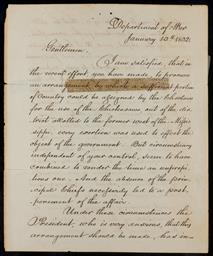 Department of War
January 10th 1832.
Gentlemen,
I am satisfied, that in
the recent effort, you have made, to procure
an arrangement, by which a sufficient portion
of Country could be assigned by the Choctaws
for the use of the Chickasaws out of the dis-
trict allotted to the former west of the Missis-
sippi, every exertion was used to effect the
object of the government. But circumstances
independent of your control, seem to have
combined to render the time an unpropi-
tious one. And the absence of the prin-
cipal Chiefs necessarily led to a post-
ponement of the affair.
Under these circumstances the
President, who is very anxious that this
arrangement should be made, has in-